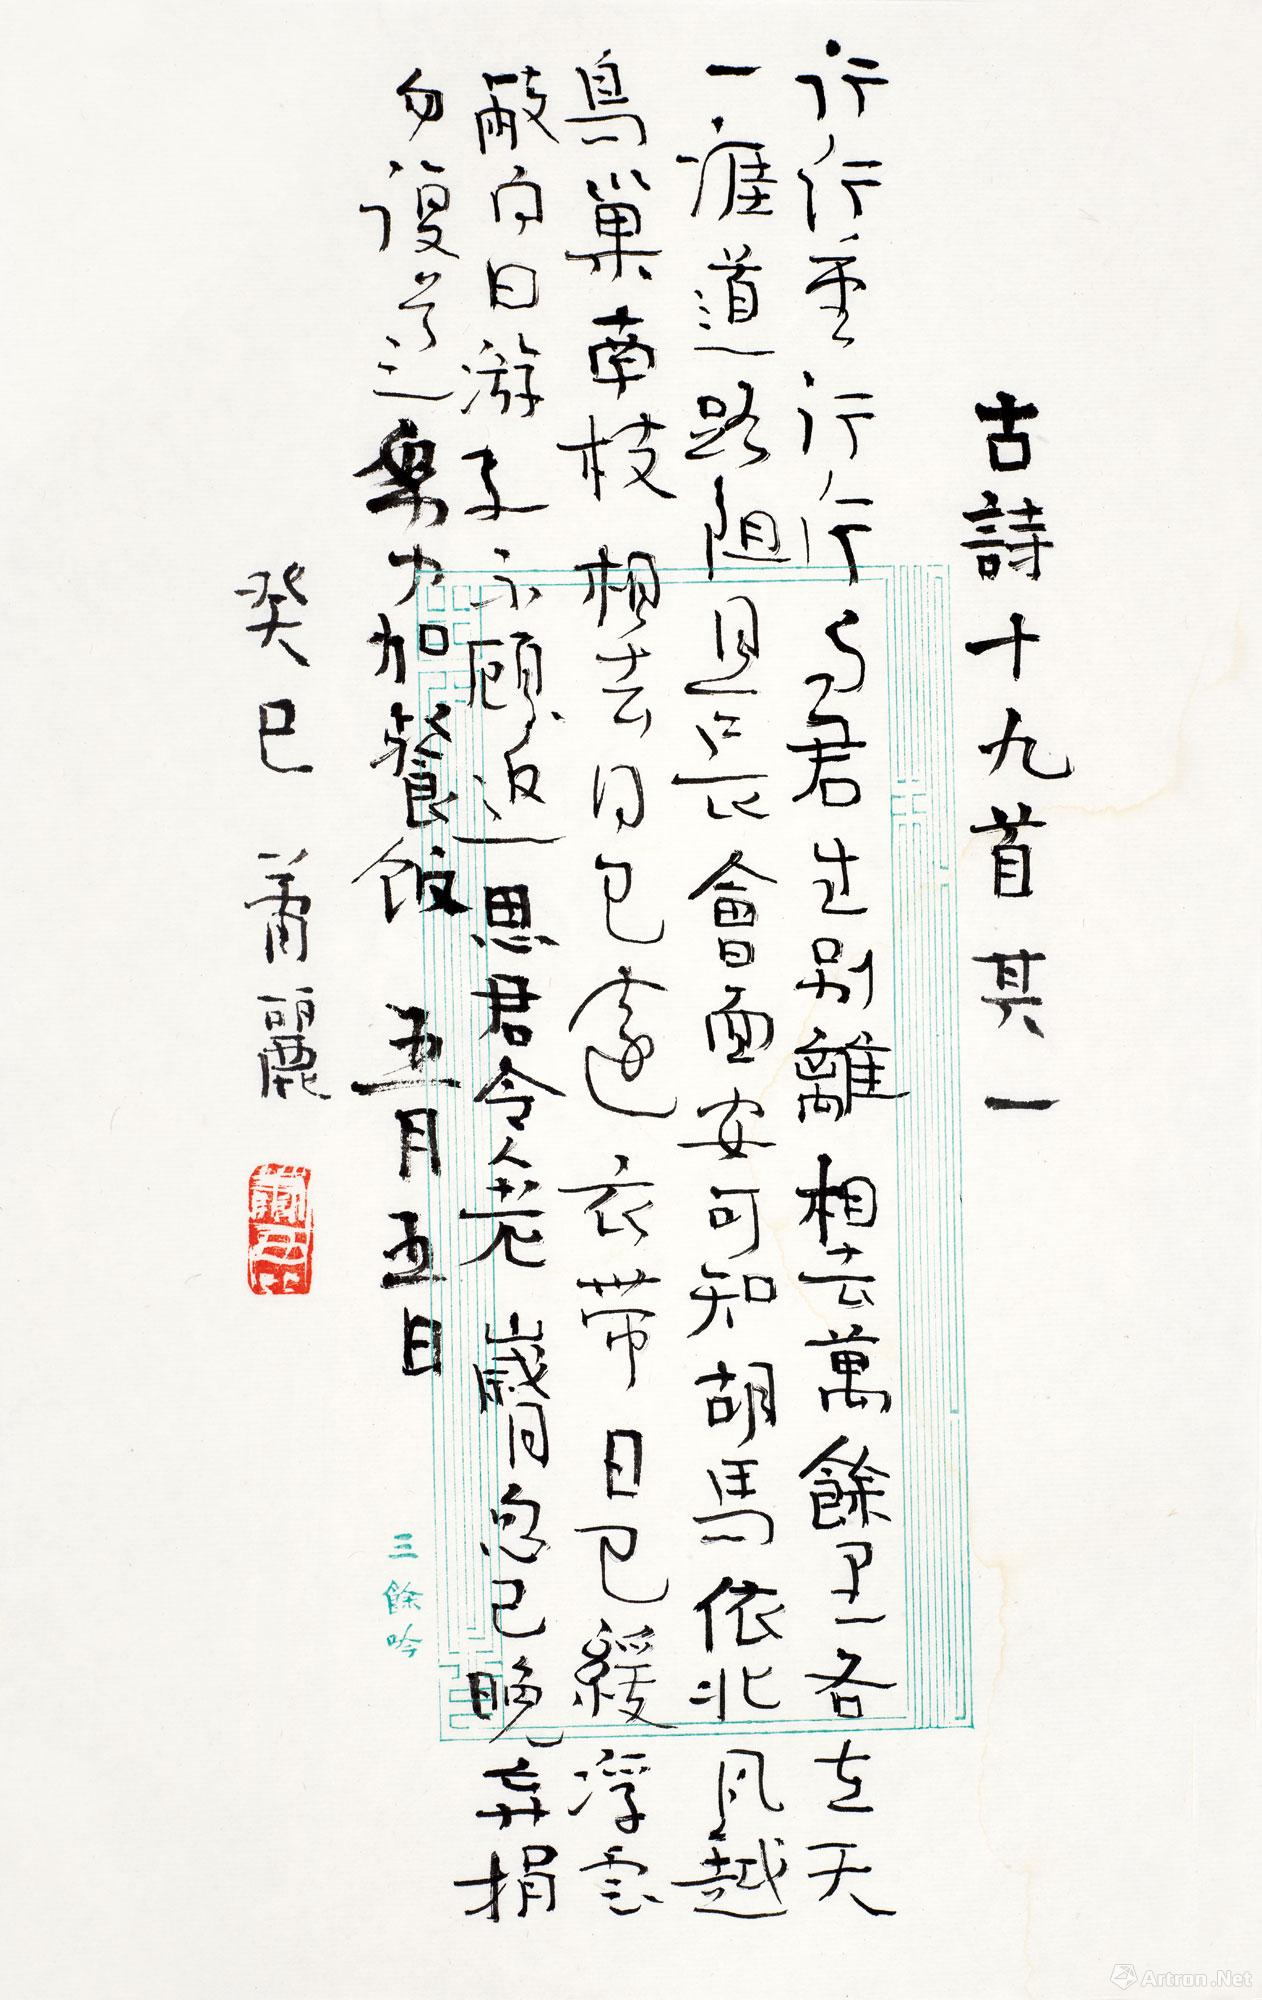 古詩十九首其一
行行重行行与君生别離相去萬餘里各在天
一涯道路阻且長會面安可知胡馬依北風越
鳥巢南枝相去日已遠衣帶日已緩浮雲
敝白日游子不顧返思君令人老歲月忽已晚弃捐
勿復道努力加餐飯五月五日
癸巳蕭麗
三餘吟
Artron.Net